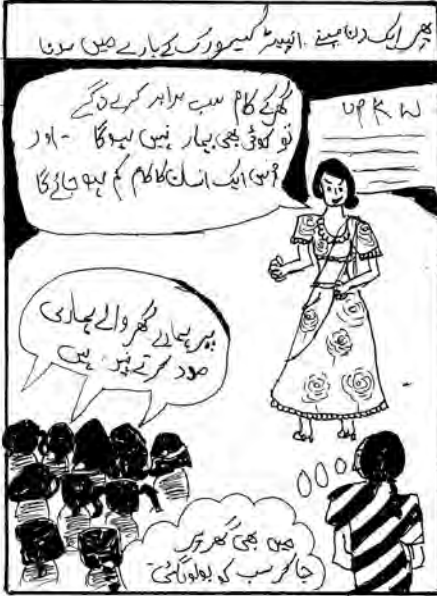 پھر ایک دن میں نے انپیڈ کیئر ورک کے بارے میں سونا
گھر کے کام سب برابر کریں گے
تو کوئی بھی بیمار نہیں ہوگا - اور
اس ایک انسان کا کام کم ہو جائے گا
UPKW
پر ہمارے گھر والے ہماری
مدد کرتے نہیں ہیں
میں بھی گھر پر
جا کر سب کو بولوں گئی